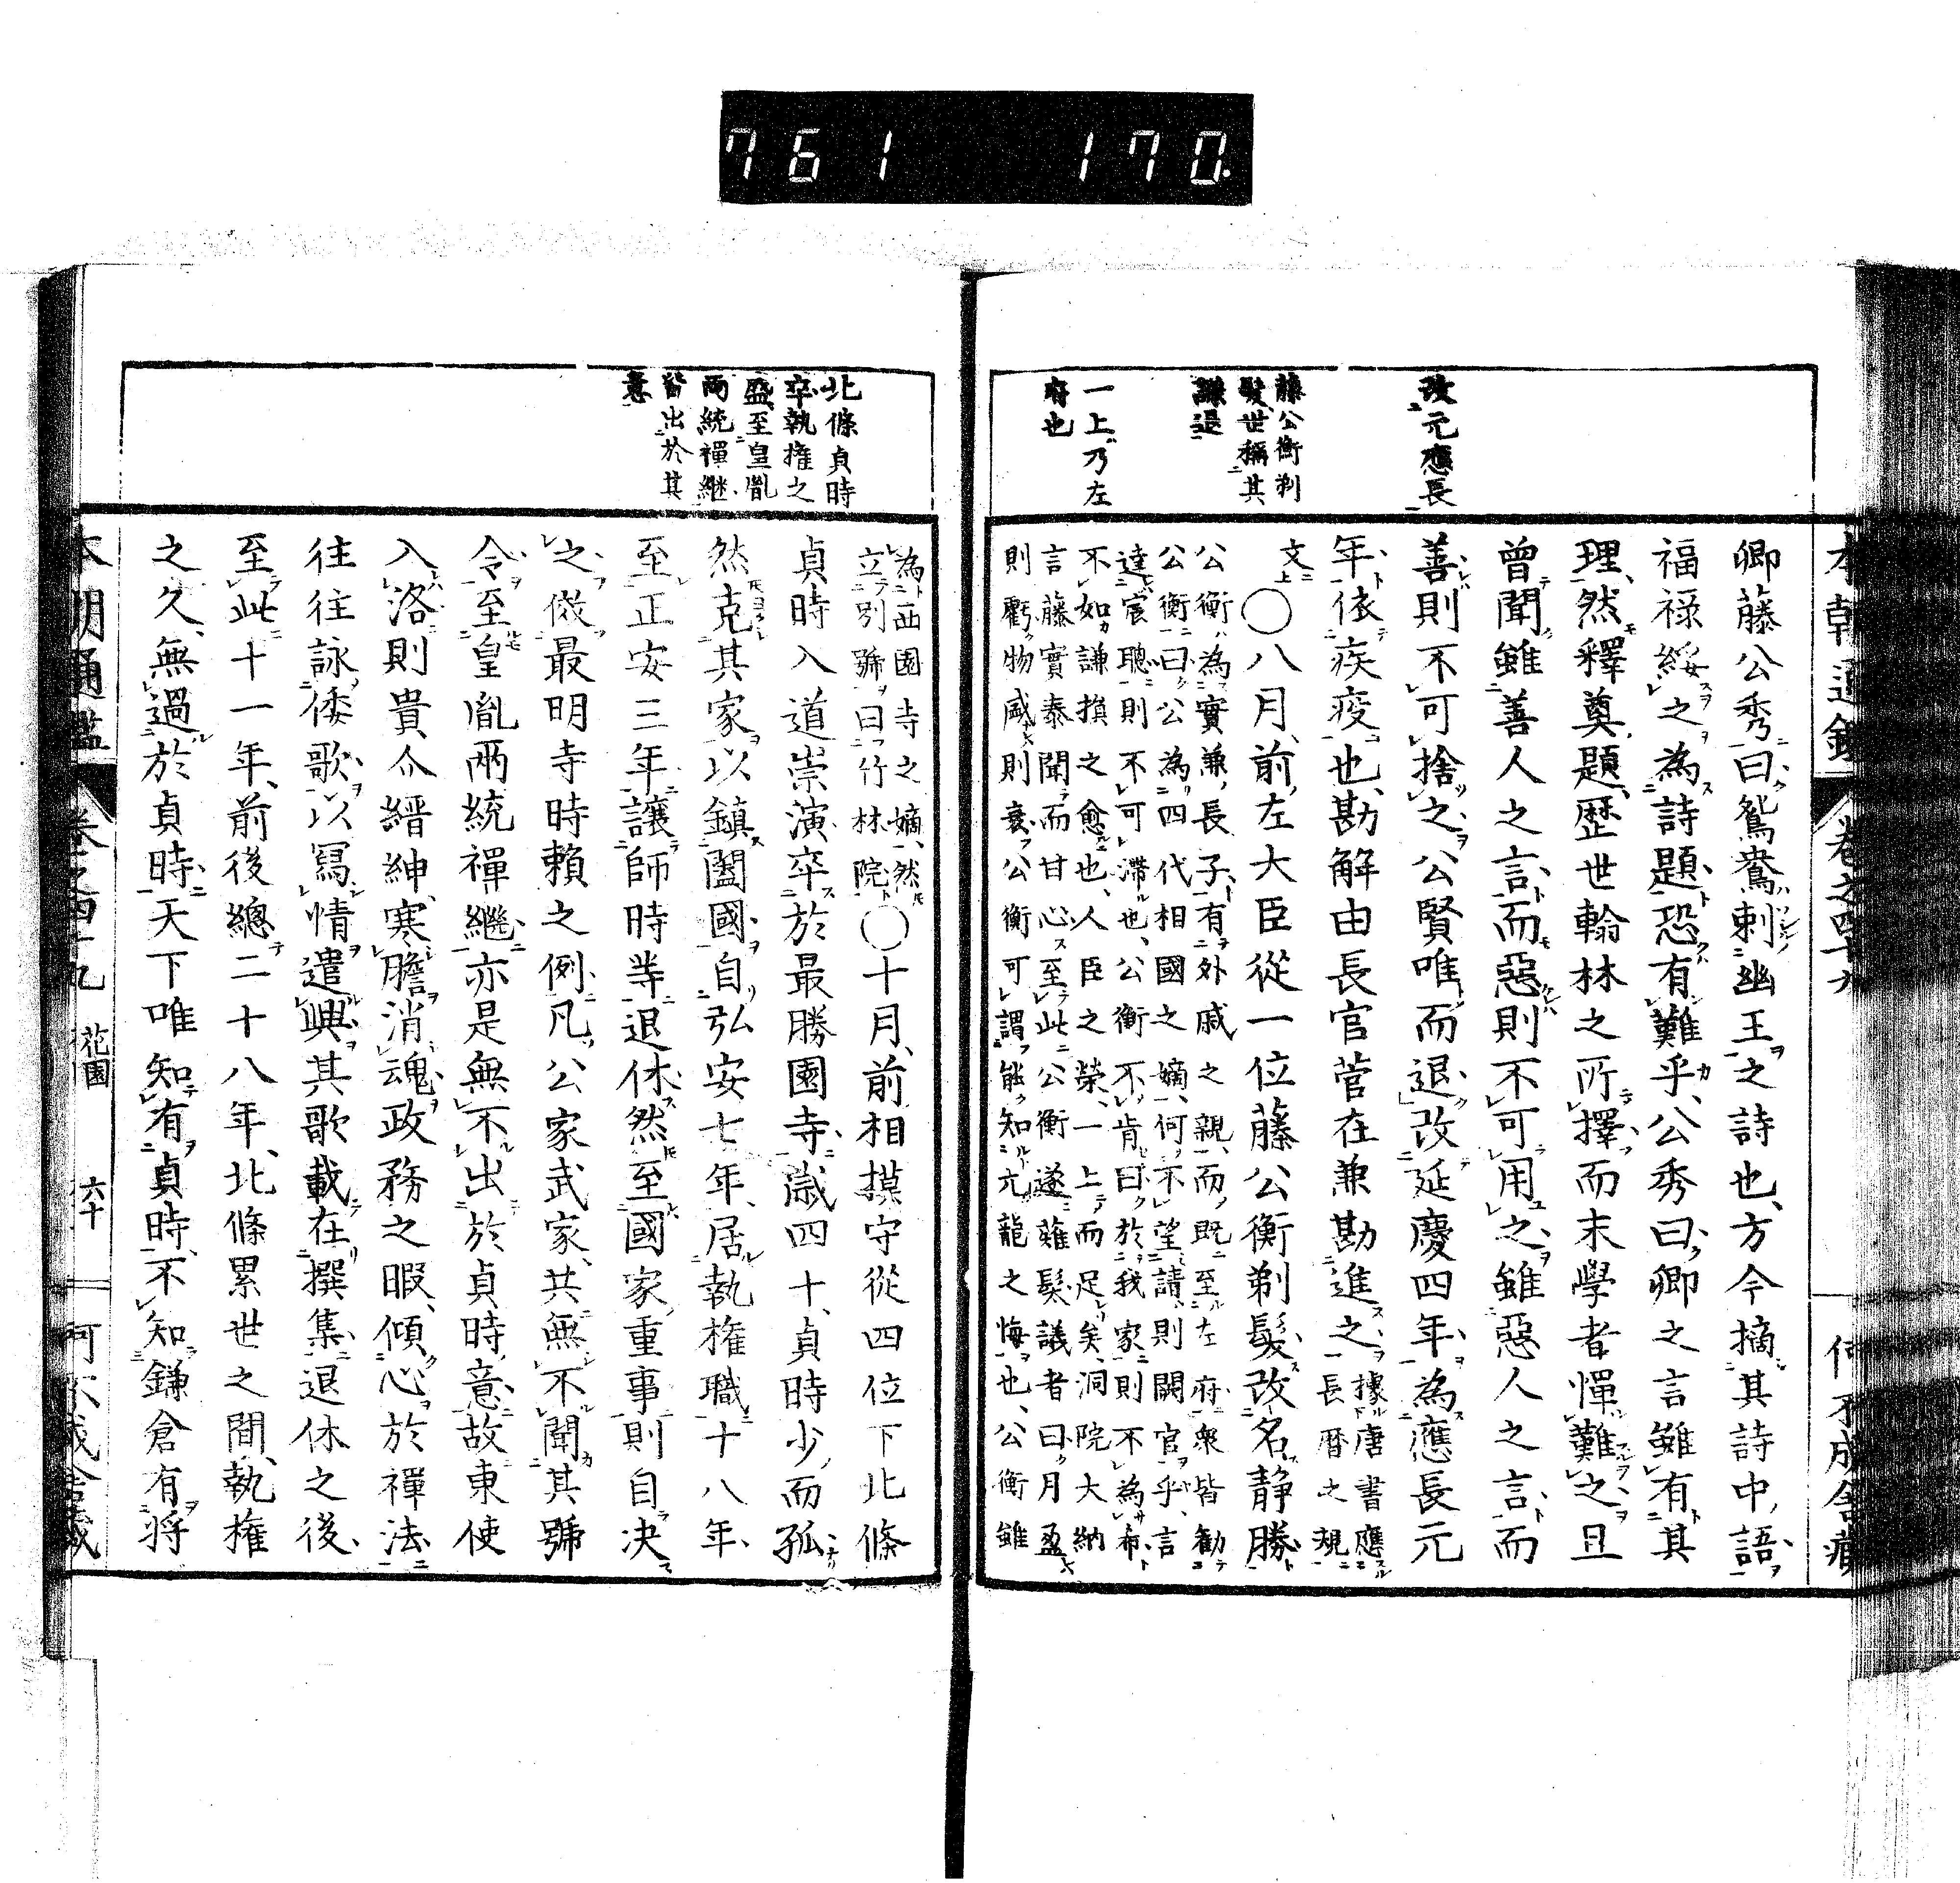 761 170.
改元應長
藤公衡剃
髮世稱其
謙退
一上乃左
府也
卿藤公秀曰鴛鴦刺幽王之詩也方今摘其詩中語
福祿綏之為詩題恐有難乎公秀曰卿之言雖有其
理然釋奠題歷世翰林之所擇而末學者憚難之且
曾聞雖善人之言而惡則不可用之雖惡人之言而
善則不可捨之公賢唯而退改延慶四年為應長元
年依疾疫也勘解由長官菅在兼勘進之據唐書應
長曆之規
文上
○八月前左大臣從一位藤公衡剃髮改名靜勝
公衡為實兼長子有外戚之親而既至左府衆皆勸
公衡曰公為四代相國之嫡何不望請則闕官乎言
達宸聰則不可滯也公衡不肯曰於我家則不為希
不如謙損之愈也人臣之榮一上而足矣洞院大納
言藤實泰聞而甘心至此公衡遂薙髮議者曰月盈
則虧物盛則衰公衡可謂能知亢龍之悔也公衡雖
北條貞時
卒執權之
盛至皇胤
兩統禪繼
皆出於其
意
為西園寺之嫡然
立別號曰竹林院
○十月前相摸守從四位下北條
貞時入道崇演卒於最勝園寺歲四十貞時少而孤
然克其家以鎮闔國自弘安七年居執權職十八年
至正安三年讓師時等退休然至國家重事則自決
之倣最明寺時賴之例凡公家武家共無不聞其號
令至皇胤兩統禪繼亦是無不出於貞時意故東使
入洛則貴介縉紳寒膽消魂政務之暇傾心於禪法
往往詠倭歌以寫情遣興其歌載在撰集退休之後
至此十一年前後總二十八年北條累世之間執權
之久無過於貞時天下唯知有貞時不知鎌倉有將
本朝通鑑 卷之四十九 花園 六十